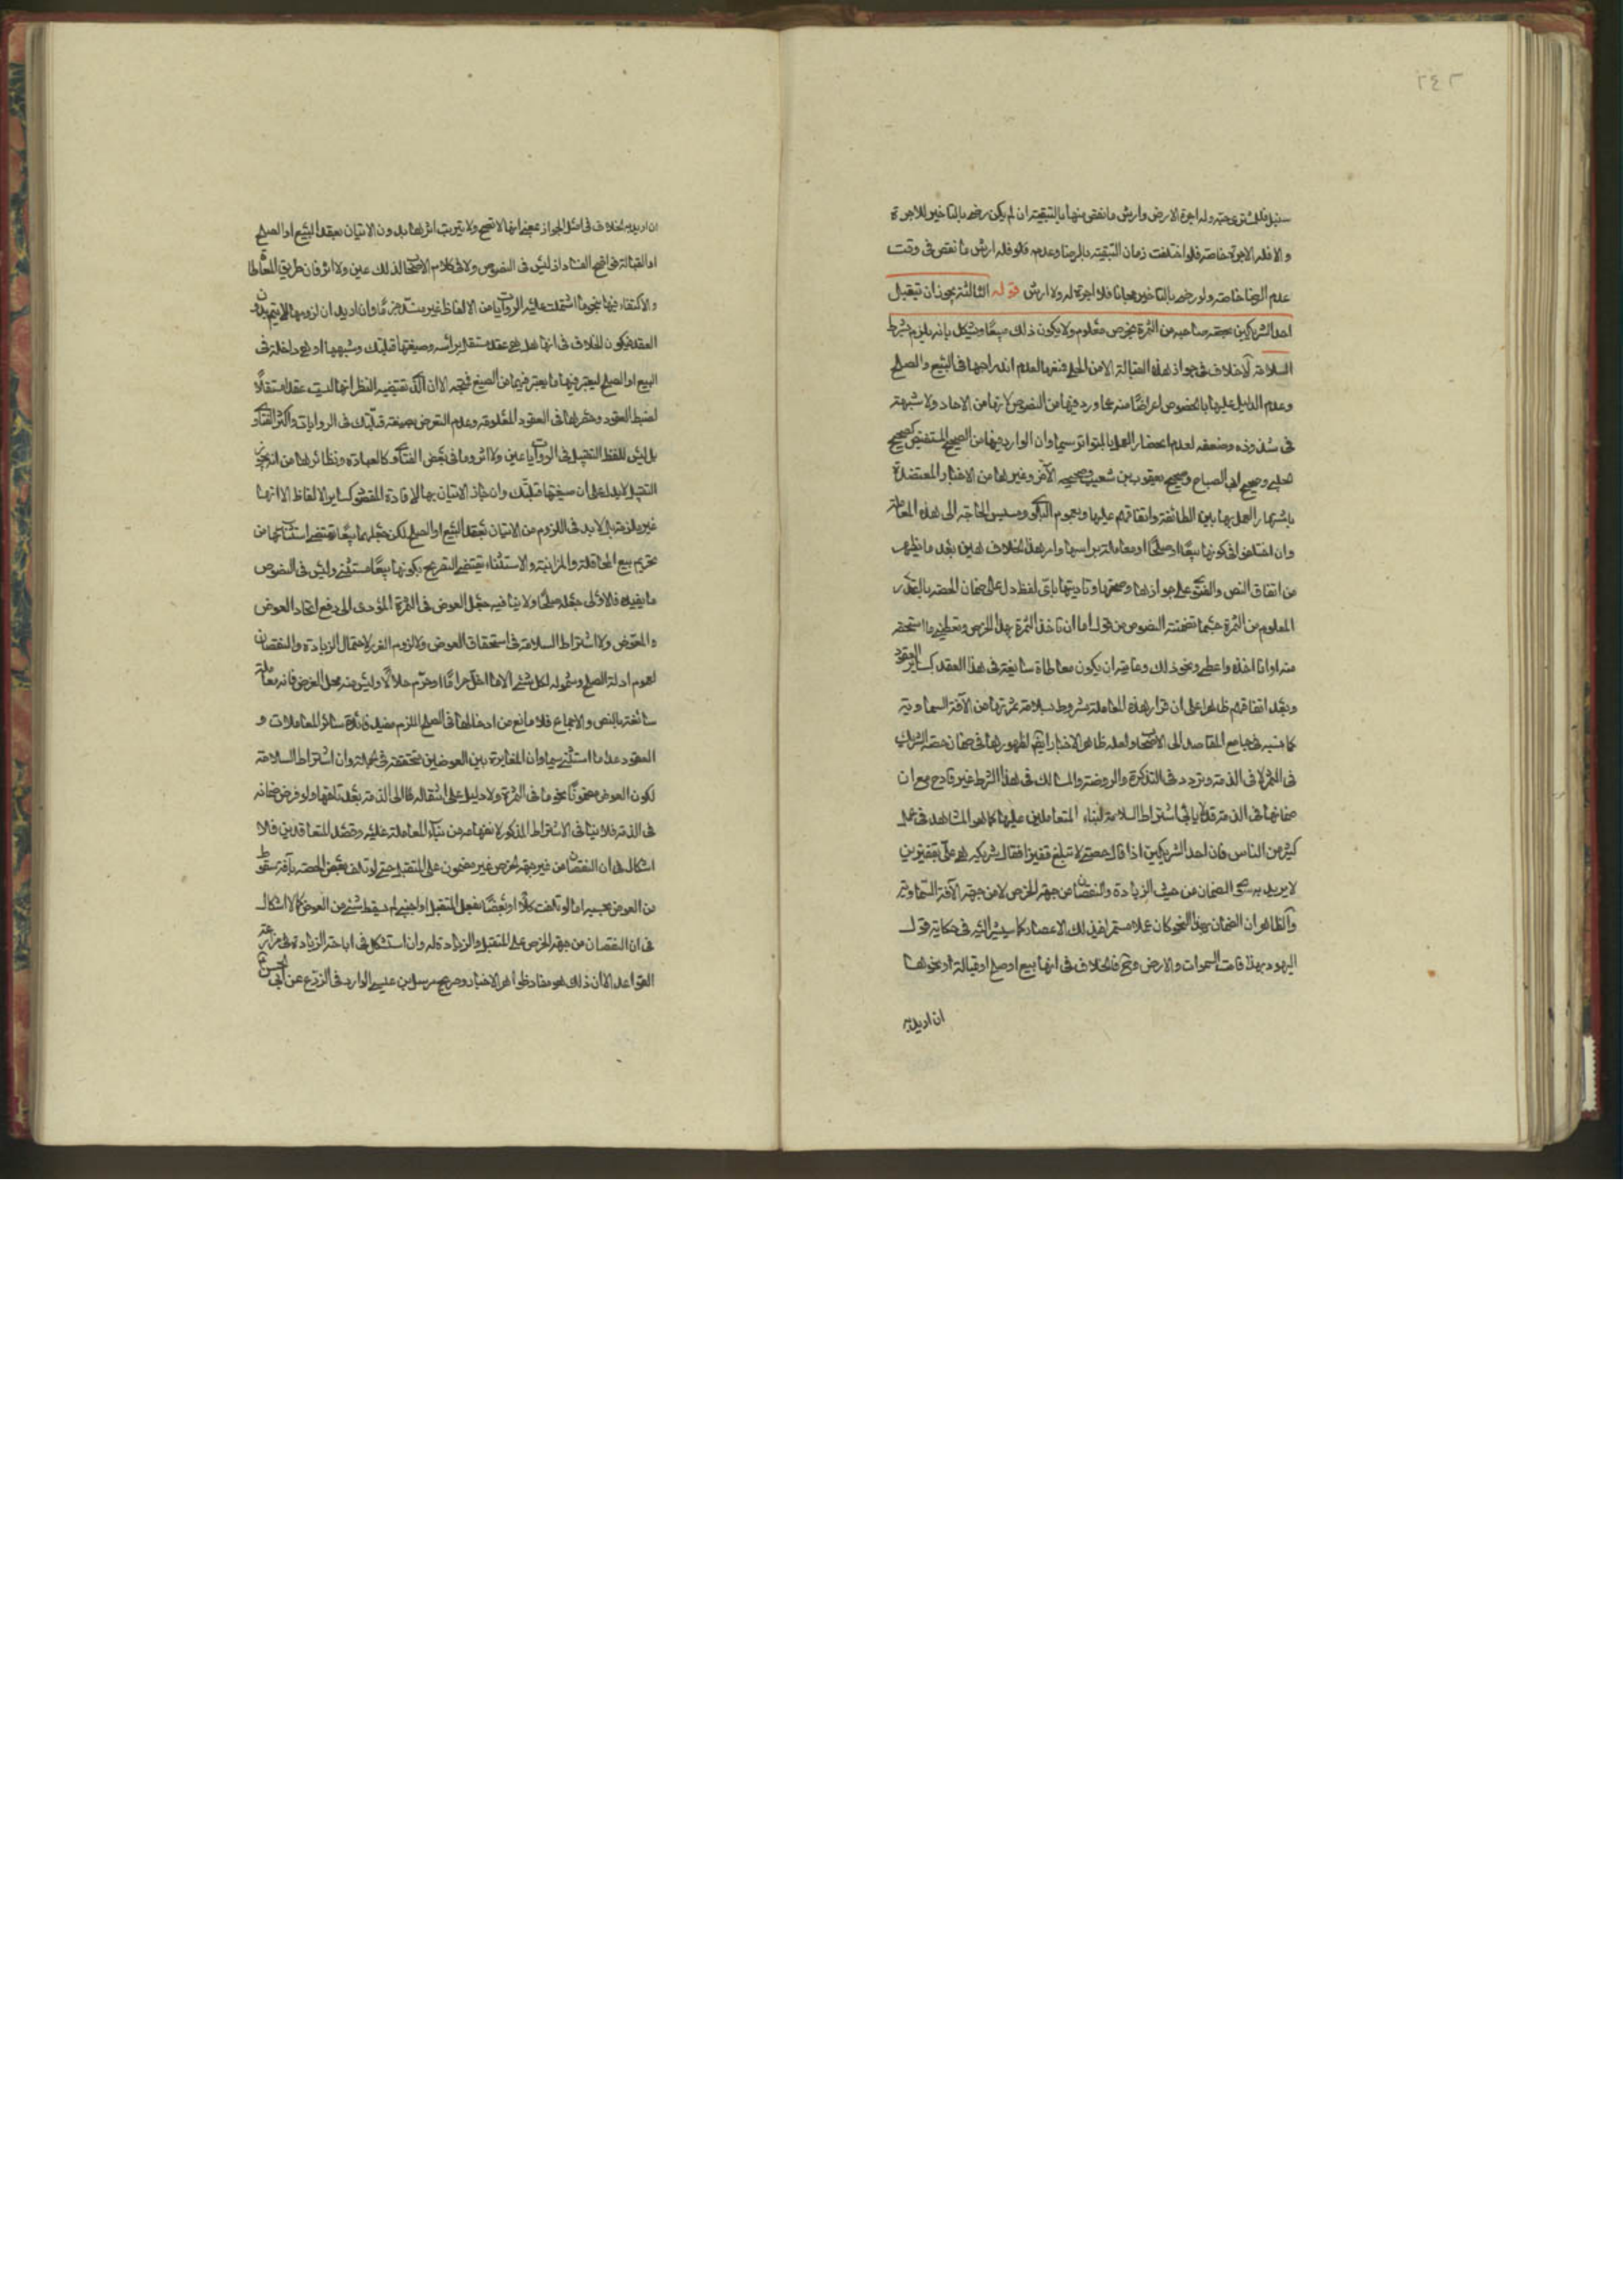 ٢٤٢
سنبل فللمشتري حقه وله اجرة الارض وارش ما نقص منها بالتبقية ان لم يكن رضي بالتاخير للاجرة
والا فله الاجرة خاصة فلو اختلفت زمان التبقية بالرضا وعدمه فله ارش ما نقص في وقت
عدم الرضا خاصة ولو رضي بالتاخير مجانا فلا اجرة له ولا ارش قوله الثالثة يجوز ان يتقبل
احد الشريكين بحصة صاحبه من الثمرة بخرص معلوم ولا يكون ذلك بيعًا ويشكل بانه يلزم بشرط
السلامة لا خلاف في جواز هذه القبالة الا من الحلي فمنعها لعدم اندراجها في البيع والصلح
وعدم الدليل عليها بالخصوص اعراضًا منه عما ورد فيها من النصوص لانها من الاحاد ولا شبهة
في شذوذه وضعفه لعدم انحصار العمل بالمتواتر سيما وان الوارد فيها من الصحيح المستفيض كصحيح
الحلبي وصحيح ابي الصباح وصحيح يعقوب بن شعيب وصحيحه الآخر وغيرها من الاخبار المعتضدة
باشتهار العمل بها بين الطائفة واتفاقهم عليها وبعموم البلوى ومسيس الحاجة الى هذه المعاملة
وان اختلفوا في كونها بيعًا او صلحًا او معاملة براسها وامر هذا الخلاف هين بعد ما يظهر
من اتفاق النص والفتوى على جوازها وصحتها وتاديتها باي لفظ دل على ضمان الحصة بالقدر
المعلوم من الثمرة حسبما تضمنته النصوص من قوله اما ان تاخذ الثمرة بهذا الخرص وتعطيني ما استحقه
منه او انا اخذه واعطي ونحو ذلك وغايته ان يكون معاطاة سايغة في هذا العقد كساير العقود
وبعد اتفاقهم ظاهرا على ان قرار هذه المعاملة مشروط بسلامة ثمرتها من الآفة السماوية
كما نسبه في جامع المقاصد الى الاصحاب ولعله ظاهر الاخبار ايضًا لظهورها في ضمان حصة الشريك
في الثمر لا في الذمة وتردد في التذكرة والروضة والمسالك في هذا الشرط غير قادح مع ان
ضمانها في الذمة قد لا يابى اشتراط السلامة لبناء المتعاملين عليها كما هو المشاهد في عمل
كثير من الناس فان احد الشريكين اذا قال حصتي لا تبلغ قفيزا فقال شريكه هي علي بقفيزين
لا يريد به سوى الضمان من حيث الزيادة والنقصان من جهة الخرص لا من جهة الآفة السماوية
والظاهر ان الضمان بهذا النحو كان عملا مستمرا في ذلك الاعصار كما يشير اليه في حكاية قول
اليهود بهذا قامت السموات والارض وح فالخلاف في انها بيع او صلح او قبالة او نحوها
ان اريد به
ان اريد به الخلاف في اصل الجواز بمعنى انها لا تصح ولا يترتب اثرها بدون الاتيان بعقد البيع او الصلح
او القبالة فواضح الفساد اذ ليس في النصوص ولا في كلام الاصحاب لذلك عين ولا اثر فان طريق المعاطاة
والاكتفاء فيها بنحو ما اشتملت عليه الروايات من الالفاظ غير منسد جزمًا وان اريد ان لزومها لا يتم بدون
العقد فيكون الخلاف في انها هل هي عقد مستقل براسه وصيغتها قبلتك وشبهها او هي داخلة في
البيع او الصلح ليعتبر فيها ما يعتبر فيهما من الصيغ فيتجه الا ان الذي يقتضيه النظر انها ليست عقدا مستقلًا
لضبط العقود وحصرها في العقود المعلومة وعدم التعرض بصيغة قبلتك في الروايات واكثر الفتاوى
بل ليس للفظ التقبيل في الروايات عين ولا اثر وما في بعض الفتاوى كالعبادة ونظائرها من انه يجوز
التقبل لا يدل على ان صيغتها قبلتك وان جاز الاتيان بها لافادة المقصود كساير الالفاظ الا انها
غير ملزمة بل لا بد في اللزوم من الاتيان بعقد البيع او الصلح لكن جعلها بيعًا يقتضي استثنائها من
تحريم بيع المحاقلة والمزابنة والاستثناء يقتضي التصريح بكونها بيعًا مستثنى وليس في النصوص
ما يفيده فالاولى جعله صلحًا ولا ينافيه جعل العوض في الثمرة المؤدي الى دفع اتحاد العوض
والمعوض ولا اشتراط السلامة في استحقاق العوض ولا لزوم الغرر لاحتمال الزيادة والنقصان
لعموم ادلة الصلح وشموله لكل شئ الا ما احل حرامًا او حرم حلالًا وليس منه محل الفرض فانه معاملة
سائغة بالنص والاجماع فلا مانع من ادخالها في الصلح اللازم مفيد فائدة سائر المعاملات و
العقود عدا ما استثنى سيما وان المغايرة بين العوضين متحققة في الجملة وان اشتراط السلامة
لكون العوض مضمونًا بنحو ما في الثمرة ولا دليل على انتقاله الى الذمة بعد تلفها ولو فرض ضمانه
في الذمة فلا ينافي الاشتراط المذكور لانفهامه من بناء المعاملة عليه وقصد المتعاقدين فلا
اشكال في ان النقصان من غير جهة الخرص غير مضمون على المتقبل حتى لو تلف بعض الحصة بآفة سقط
من العوض بحسبه اما لو تلفت كلًا او بعضًا بفعل المتقبل او اجنبي لم يسقط شئ من العوض كما لا اشكال
في ان النقصان من جهة الخرص على المتقبل والزيادة له وان استشكل في اباحة الزيادة في مزارعة
القواعد الا ان ذلك هو مفاد ظواهر الاخبار وصريح مرسل بن عيسى الوارد في الزرع عن ابي الحسن ع